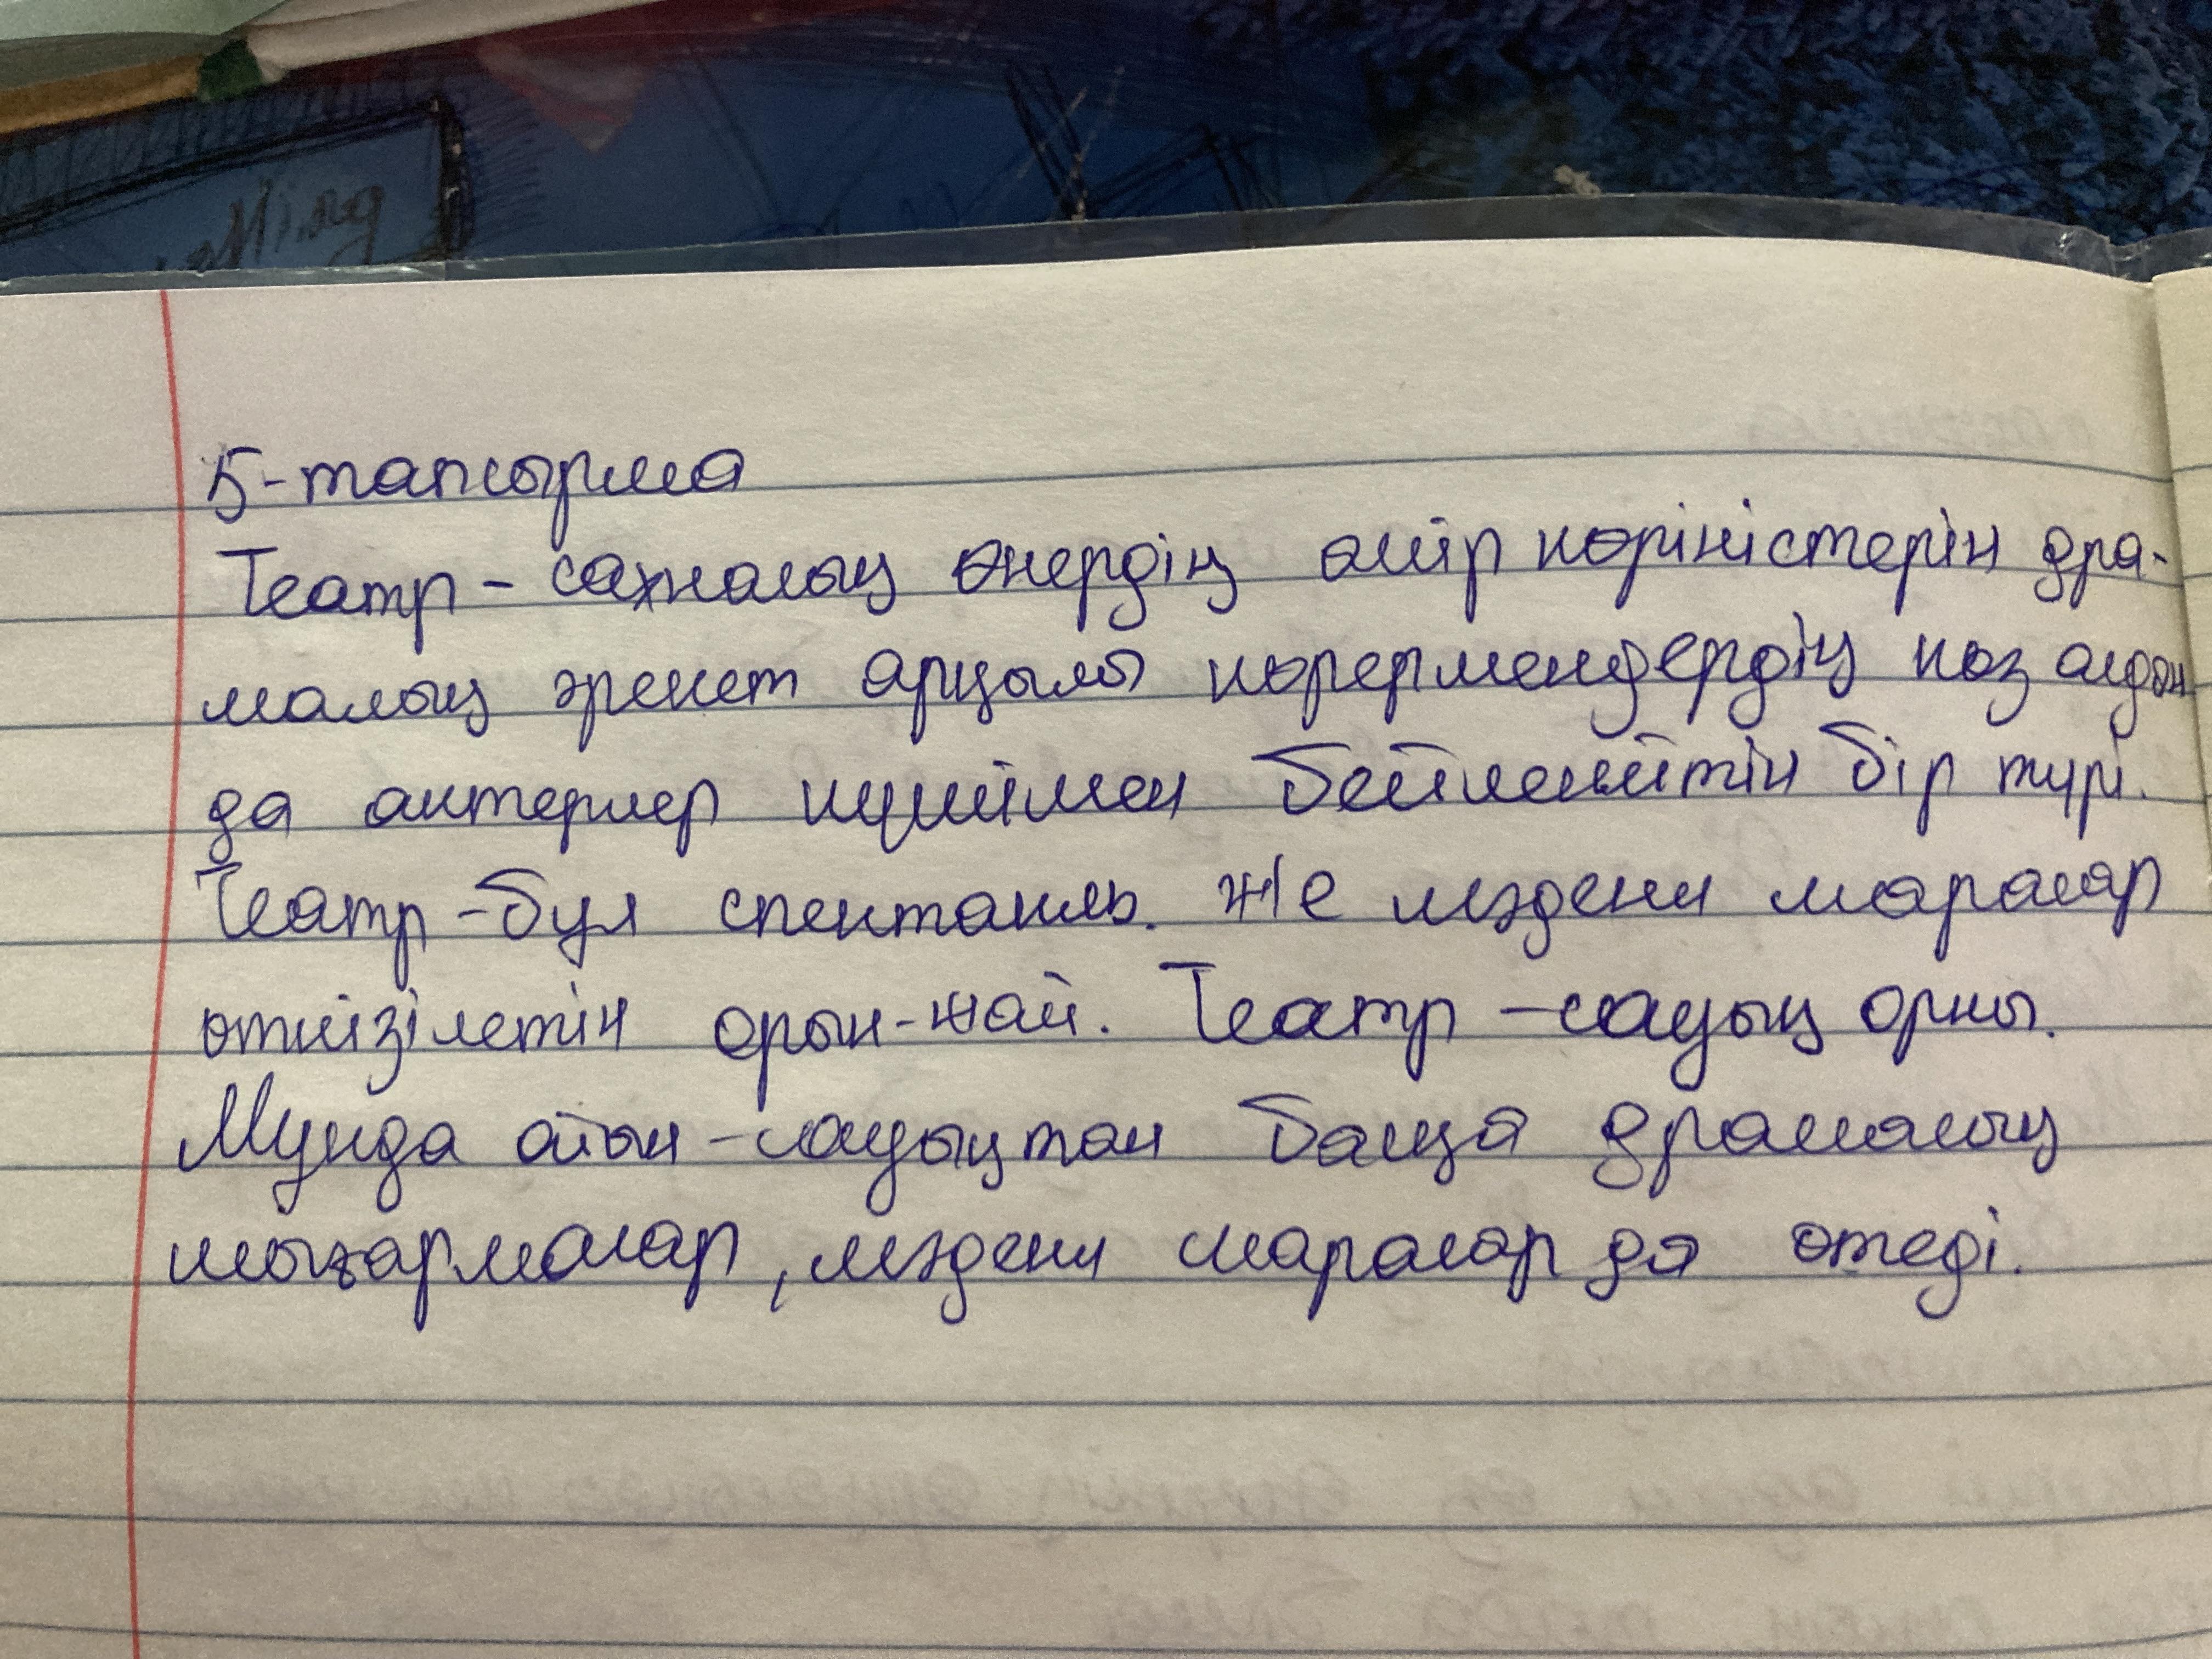 5-тапсырма
Театр - сахналық өнердің өмір көріністерін дра-
малық әрекет арқылы көрермендердің көз алдын
да актерлер күшімен бейнелейтін бір түрі.
Театр - бұл спектакль. Же мәдени маралар
өткізілетін орын-жай. Театр - сауық орны.
Мұнда ойын-сауықтан басқа драмалық
шығармалар, мәдени шаралар да өтеді.